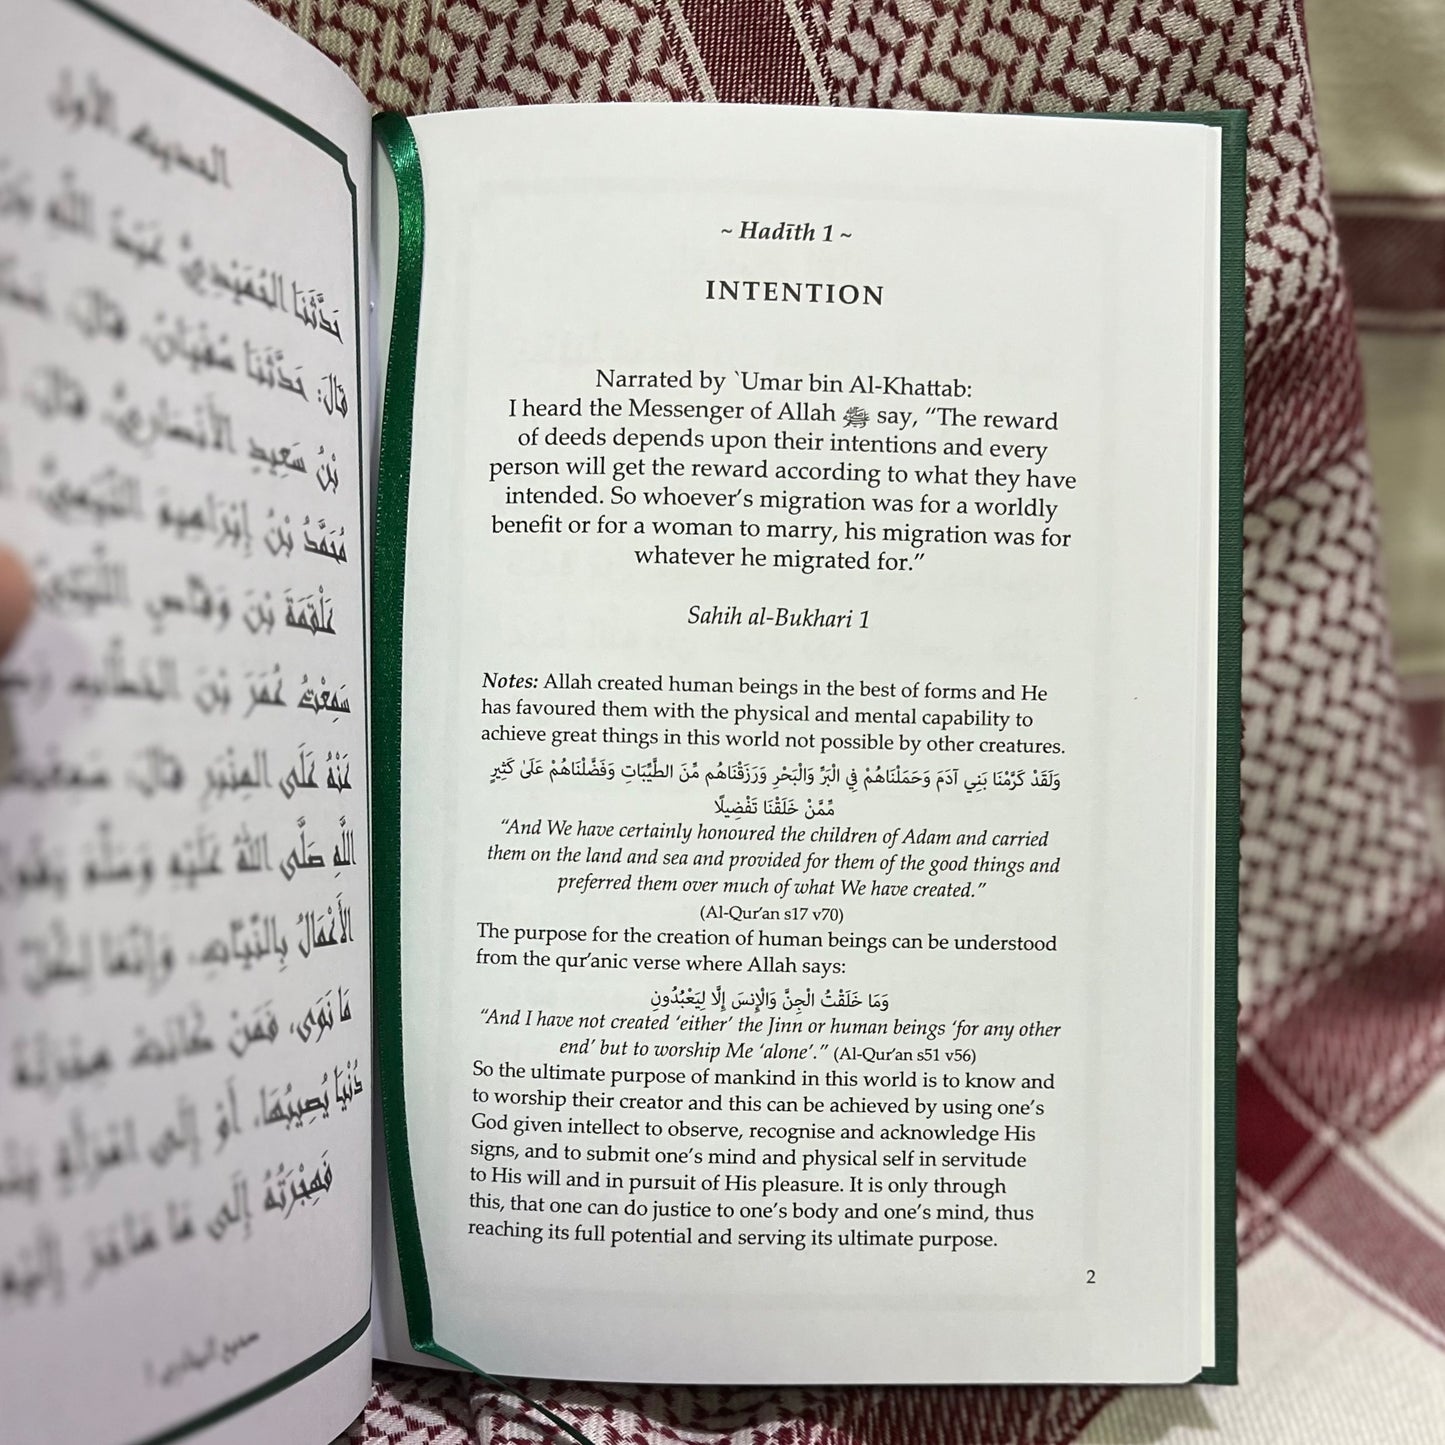 الحديث الأول
حَدَّثَنَا الْحُمَيْدِيُّ عَبْدُ اللَّهِ بْنُ
قَالَ: حَدَّثَنَا سُفْيَانُ، قَالَ:
بْنُ سَعِيدٍ الْأَنْصَارِيُّ، قَالَ:
مُحَمَّدُ بْنُ إِبْرَاهِيمَ التَّيْمِيُّ،
عَلْقَمَةَ بْنَ وَقَّاصٍ اللَّيْثِيَّ
سَمِعْتُ عُمَرَ بْنَ الْخَطَّابِ
عَنْهُ عَلَى الْمِنْبَرِ قَالَ:
اللَّهِ صَلَّى اللهُ عَلَيْهِ وسَلَّم
الْأَعْمَالُ بِالنِّيَّاتِ، وَإِنَّمَا لِكُلِّ
مَا نَوَى، فَمَنْ كَانَتْ هِجْرَتُهُ
دُنْيَا يُصِيبُهَا، أَوْ إِلَى امْرَأَةٍ
فَهِجْرَتُهُ إِلَى مَا هَاجَرَ إِلَيْهِ
صحيح البخاري ١
~ Hadīth 1 ~
INTENTION
Narrated by `Umar bin Al-Khattab:
I heard the Messenger of Allah ﷺ say, “The reward
of deeds depends upon their intentions and every
person will get the reward according to what they have
intended. So whoever’s migration was for a worldly
benefit or for a woman to marry, his migration was for
whatever he migrated for.”
Sahih al-Bukhari 1
Notes: Allah created human beings in the best of forms and He
has favoured them with the physical and mental capability to
achieve great things in this world not possible by other creatures.
وَلَقَدْ كَرَّمْنَا بَنِي آدَمَ وَحَمَلْنَاهُمْ فِي الْبَرِّ وَالْبَحْرِ وَرَزَقْنَاهُم مِّنَ الطَّيِّبَاتِ وَفَضَّلْنَاهُمْ عَلَىٰ كَثِيرٍ
مِّمَّنْ خَلَقْنَا تَفْضِيلًا
“And We have certainly honoured the children of Adam and carried
them on the land and sea and provided for them of the good things and
preferred them over much of what We have created.”
(Al-Qur’an s17 v70)
The purpose for the creation of human beings can be understood
from the qur’anic verse where Allah says:
وَمَا خَلَقْتُ الْجِنَّ وَالْإِنسَ إِلَّا لِيَعْبُدُونِ
“And I have not created ‘either’ the Jinn or human beings ‘for any other
end’ but to worship Me ‘alone’.” (Al-Qur’an s51 v56)
So the ultimate purpose of mankind in this world is to know and
to worship their creator and this can be achieved by using one’s
God given intellect to observe, recognise and acknowledge His
signs, and to submit one’s mind and physical self in servitude
to His will and in pursuit of His pleasure. It is only through
this, that one can do justice to one’s body and one’s mind, thus
reaching its full potential and serving its ultimate purpose.
2